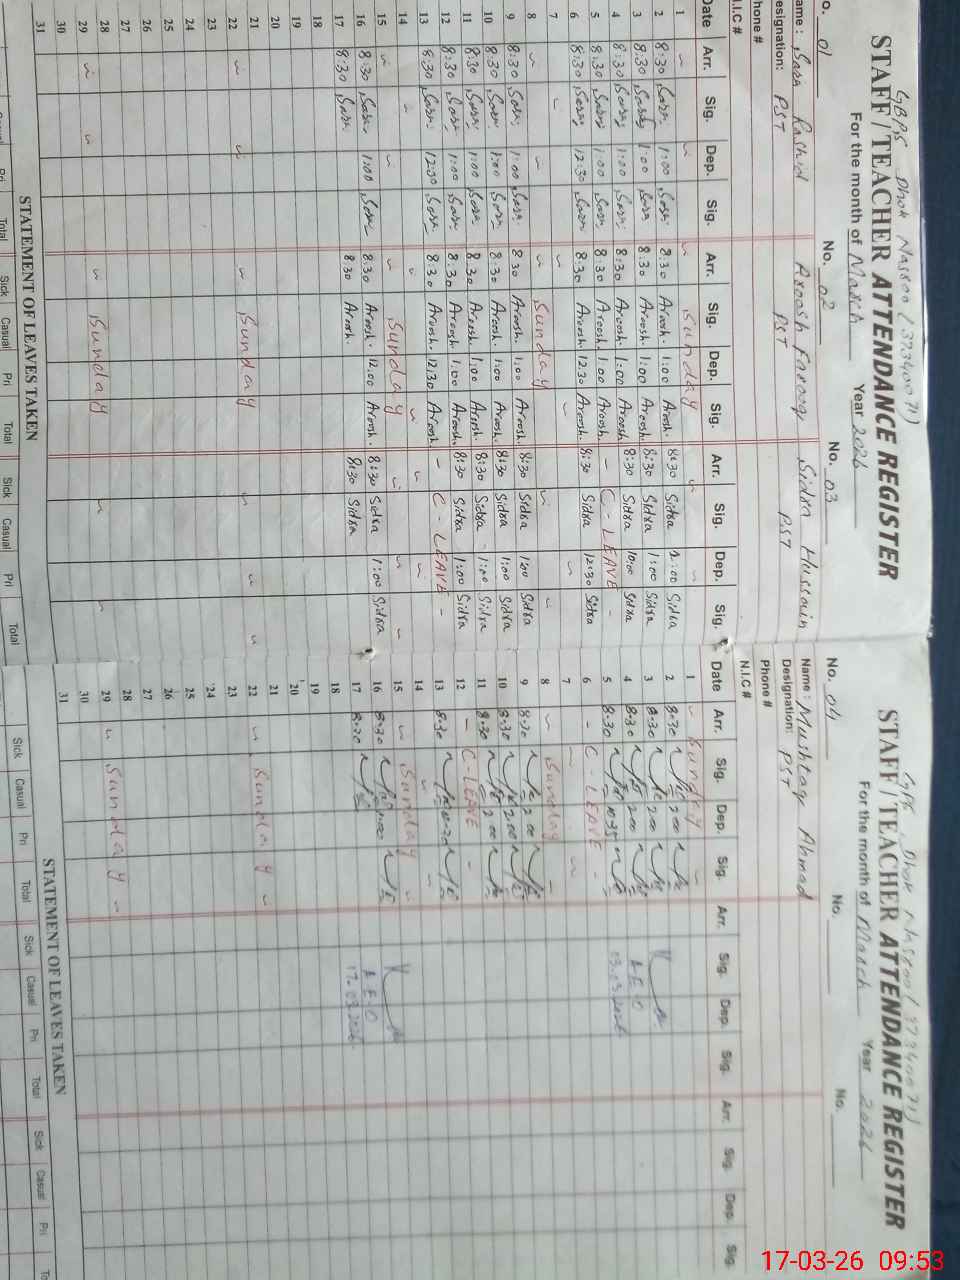 GBPS Dhok Nassoo (37340071)
STAFF / TEACHER ATTENDANCE REGISTER
For the month of March Year 2026
o. 01 No. 02 No. 03
ame: Sara Rashid Aroosh Farooq Sidra Hussain
esignation: PST PST PST
hone #
.I.C #
Date Arr. Sig. Dep. Sig. Arr. Sig. Dep. Sig. Arr. Sig. Dep. Sig.
1 Sunday
2 8:30 Sara 1:00 Sara 8:30 Aroosh. 1:00 Aroosh. 8:30 Sidra 1:00 Sidra
3 8:30 Sara 1:00 Sara 8:30 Aroosh. 1:00 Aroosh. 8:30 Sidra 1:00 Sidra
4 8:30 Sara 1:00 Sara 8:30 Aroosh. 1:00 Aroosh. 8:30 Sidra 10:00 Sidra
5 8:30 Sara 1:00 Sara 8:30 Aroosh. 1:00 Aroosh. - C - LEAVE -
6 8:30 Sara 12:30 Sara 8:30 Aroosh. 12:30 Aroosh. 8:30 Sidra 12:30 Sidra
7
8 Sunday
9 8:30 Sara 1:00 Sara 8:30 Aroosh. 1:00 Aroosh. 8:30 Sidra 1:00 Sidra
10 8:30 Sara 1:00 Sara 8:30 Aroosh. 1:00 Aroosh. 8:30 Sidra 1:00 Sidra
11 8:30 Sara 1:00 Sara 8:30 Aroosh. 1:00 Aroosh. 8:30 Sidra 1:00 Sidra
12 8:30 Sara 1:00 Sara 8:30 Aroosh. 1:00 Aroosh. 8:30 Sidra 1:00 Sidra
13 8:30 Sara 12:30 Sara 8:30 Aroosh. 12:30 Aroosh. - C - LEAVE -
14
15 Sunday
16 8:30 Sara 1:00 Sara 8:30 Aroosh. 12:00 Aroosh. 8:30 Sidra 1:00 Sidra
17 8:30 Sara 8:30 Aroosh. 8:30 Sidra
18
19
20
21
22 Sunday
23
24
25
26
27
28
29 Sunday
30
31
STATEMENT OF LEAVES TAKEN
Casual Pri Total Sick Casual Pri Total Sick Casual Pri Total
STAFF / TEACHER ATTENDANCE REGISTER
For the month of March Year 2026
No. 04 No. No.
Name: Mushtaq Ahmad
Designation: PST
Phone #
N.I.C #
Date Arr. Sig. Dep. Sig. Arr. Sig. Dep. Sig. Arr. Sig. Dep. Sig.
1 Sunday
2 8:30 200
3 8:30 200
4 8:30 200
5 8:30 10:35
6 - C - LEAVE -
7
8 Sunday
9 8:30
10 8:30 200
11 8:30 200
12 - C - LEAVE -
13 8:30
14
15 Sunday
16 8:30
17 8:30
18
19
20
21
22 Sunday
23
24
25
26
27
28
29 Sunday
30
31
A.E.O
03.03.2026
A.E.O
17.03.2026
STATEMENT OF LEAVES TAKEN
Sick Casual Pri Total Sick Casual Pri Total Sick Casual Pri To
17-03-26 09:53